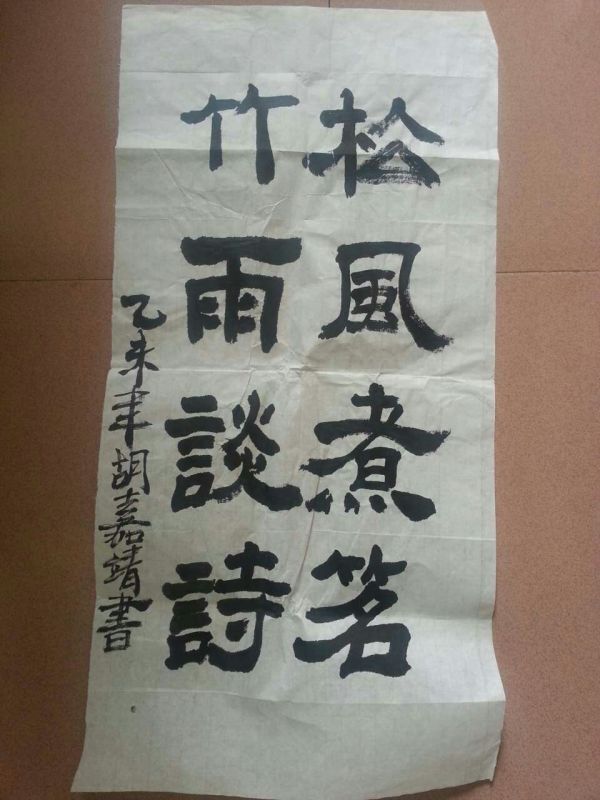 松風煮茗
竹雨談詩
乙未年胡嘉靖書